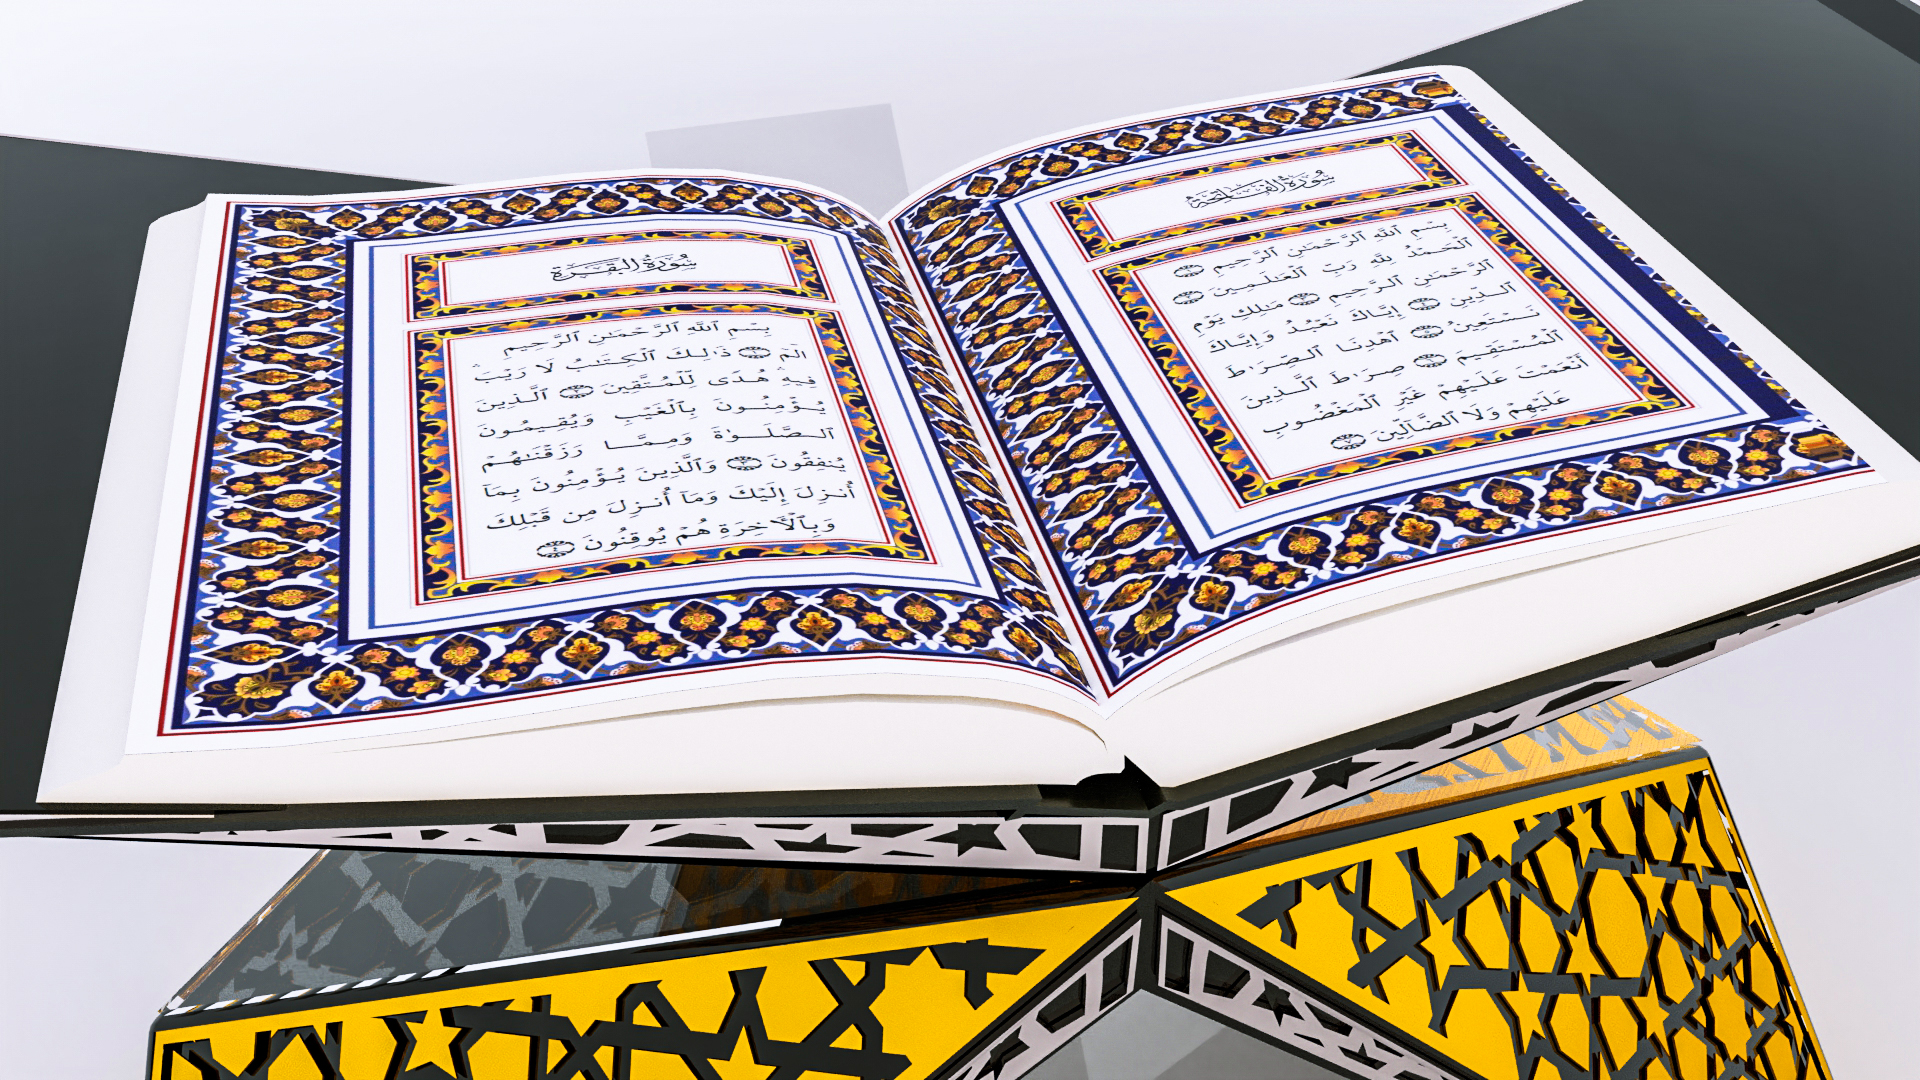 سُورَةُ الفَاتِحَةِ
بِسْمِ ٱللَّهِ ٱلرَّحْمَٰنِ ٱلرَّحِيمِ ۝١
ٱلْحَمْدُ لِلَّهِ رَبِّ ٱلْعَٰلَمِينَ ۝٢
ٱلرَّحْمَٰنِ ٱلرَّحِيمِ ۝٣ مَٰلِكِ يَوْمِ
ٱلدِّينِ ۝٤ إِيَّاكَ نَعْبُدُ وَإِيَّاكَ
نَسْتَعِينُ ۝٥ ٱهْدِنَا ٱلصِّرَٰطَ
ٱلْمُسْتَقِيمَ ۝٦ صِرَٰطَ ٱلَّذِينَ
أَنْعَمْتَ عَلَيْهِمْ غَيْرِ ٱلْمَغْضُوبِ
عَلَيْهِمْ وَلَا ٱلضَّآلِّينَ ۝٧
سُورَةُ البَقَرَةِ
بِسْمِ ٱللَّهِ ٱلرَّحْمَٰنِ ٱلرَّحِيمِ
الٓمٓ ۝١ ذَٰلِكَ ٱلْكِتَٰبُ لَا رَيْبَ ۛ
فِيهِ ۛ هُدًى لِّلْمُتَّقِينَ ۝٢ ٱلَّذِينَ
يُؤْمِنُونَ بِٱلْغَيْبِ وَيُقِيمُونَ
ٱلصَّلَوٰةَ وَمِمَّا رَزَقْنَٰهُمْ
يُنفِقُونَ ۝٣ وَٱلَّذِينَ يُؤْمِنُونَ بِمَآ
أُنزِلَ إِلَيْكَ وَمَآ أُنزِلَ مِن قَبْلِكَ
وَبِٱلْءَاخِرَةِ هُمْ يُوقِنُونَ ۝٤